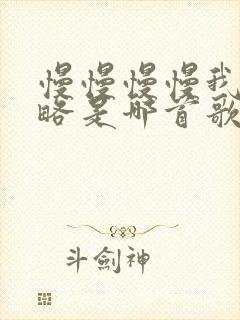 慢慢慢慢我
略是哪首歌
斗劍神